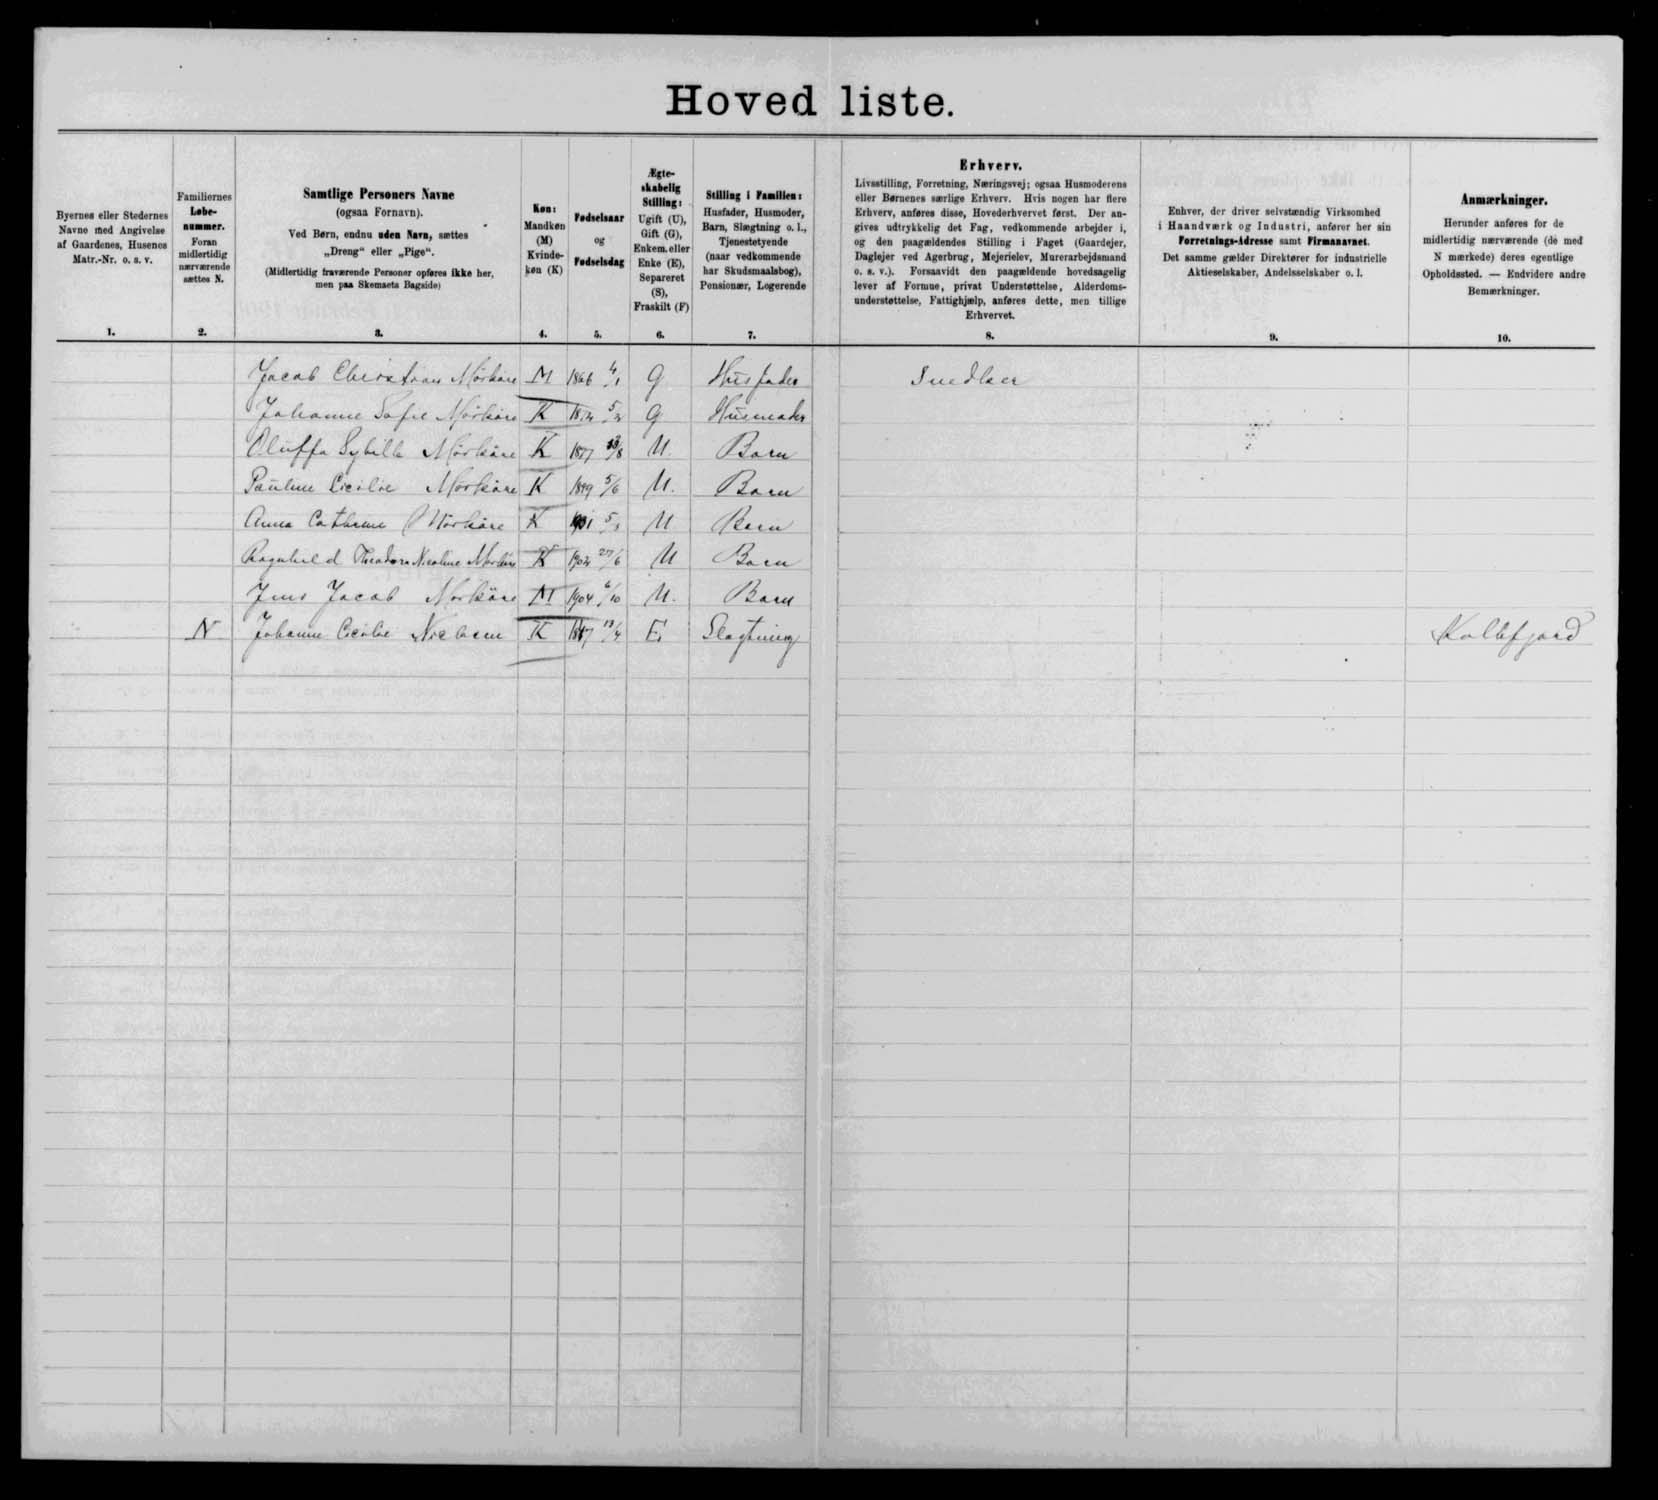 Hoved liste.
Byernes eller Stedernes
Navne med Angivelse
af Gaardenes, Husenes
Matr.-Nr. o. s. v.
1.
Familiernes
Løbe-
nummer.
Foran
midlertidig
nærværende
sættes N.
2.
Samtlige Personers Navne
(ogsaa Fornavn).
Ved Børn, endnu uden Navn, sættes
„Dreng“ eller „Pige“.
(Midlertidig fraværende Personer opføres ikke her,
men paa Skemaets Bagside)
3.
Køn:
Mandkøn
(M)
Kvinde-
køn (K)
4.
Fødselsaar
og
Fødselsdag
5.
Ægte-
skabelig
Stilling:
Ugift (U),
Gift (G),
Enkem. eller
Enke (E),
Separeret
(S),
Fraskilt (F)
6.
Stilling i Familien:
Husfader, Husmoder,
Barn, Slægtning o. l.,
Tjenestetyende
(naar vedkommende
har Skudsmaalsbog),
Pensionær, Logerende
7.
Erhverv.
Livsstilling, Forretning, Næringsvej; ogsaa Husmoderens
eller Børnenes særlige Erhverv. Hvis nogen har flere
Erhverv, anføres disse, Hovederhvervet først. Der an-
gives udtrykkelig det Fag, vedkommende arbejder i,
og den paagældendes Stilling i Faget (Gaardejer,
Daglejer ved Agerbrug, Mejerielev, Murerarbejdsmand
o. s. v.). Forsaavidt den paagældende hovedsagelig
lever af Formue, privat Understøttelse, Alderdoms-
understøttelse, Fattighjælp, anføres dette, men tillige
Erhvervet.
8.
Enhver, der driver selvstændig Virksomhed
i Haandværk og Industri, anfører her sin
Forretnings-Adresse samt Firmanavnet.
Det samme gælder Direktører for industrielle
Aktieselskaber, Andelsselskaber o. l.
9.
Anmærkninger.
Herunder anføres for de
midlertidig nærværende (de med
N mærkede) deres egentlige
Opholdssted. — Endvidere andre
Bemærkninger.
10.
Jacob Christian Mörköre M 1866 4/1 G Husfader
Johanne Sofie Mörköre K 5/2 G Husmoder
Oluffa Sybille Mörköre K U. Barn
Pauline Mörköre K 1899 5/6 U. Barn
Anna Mörköre K U Barn
Ragnhild Theodora Nicoline Mörköre K 27/6 U Barn
Jens Jacob Mörköre M 1904 6/10 U. Barn
N Johanne K 13/4 E. Slagtning Kollefjord